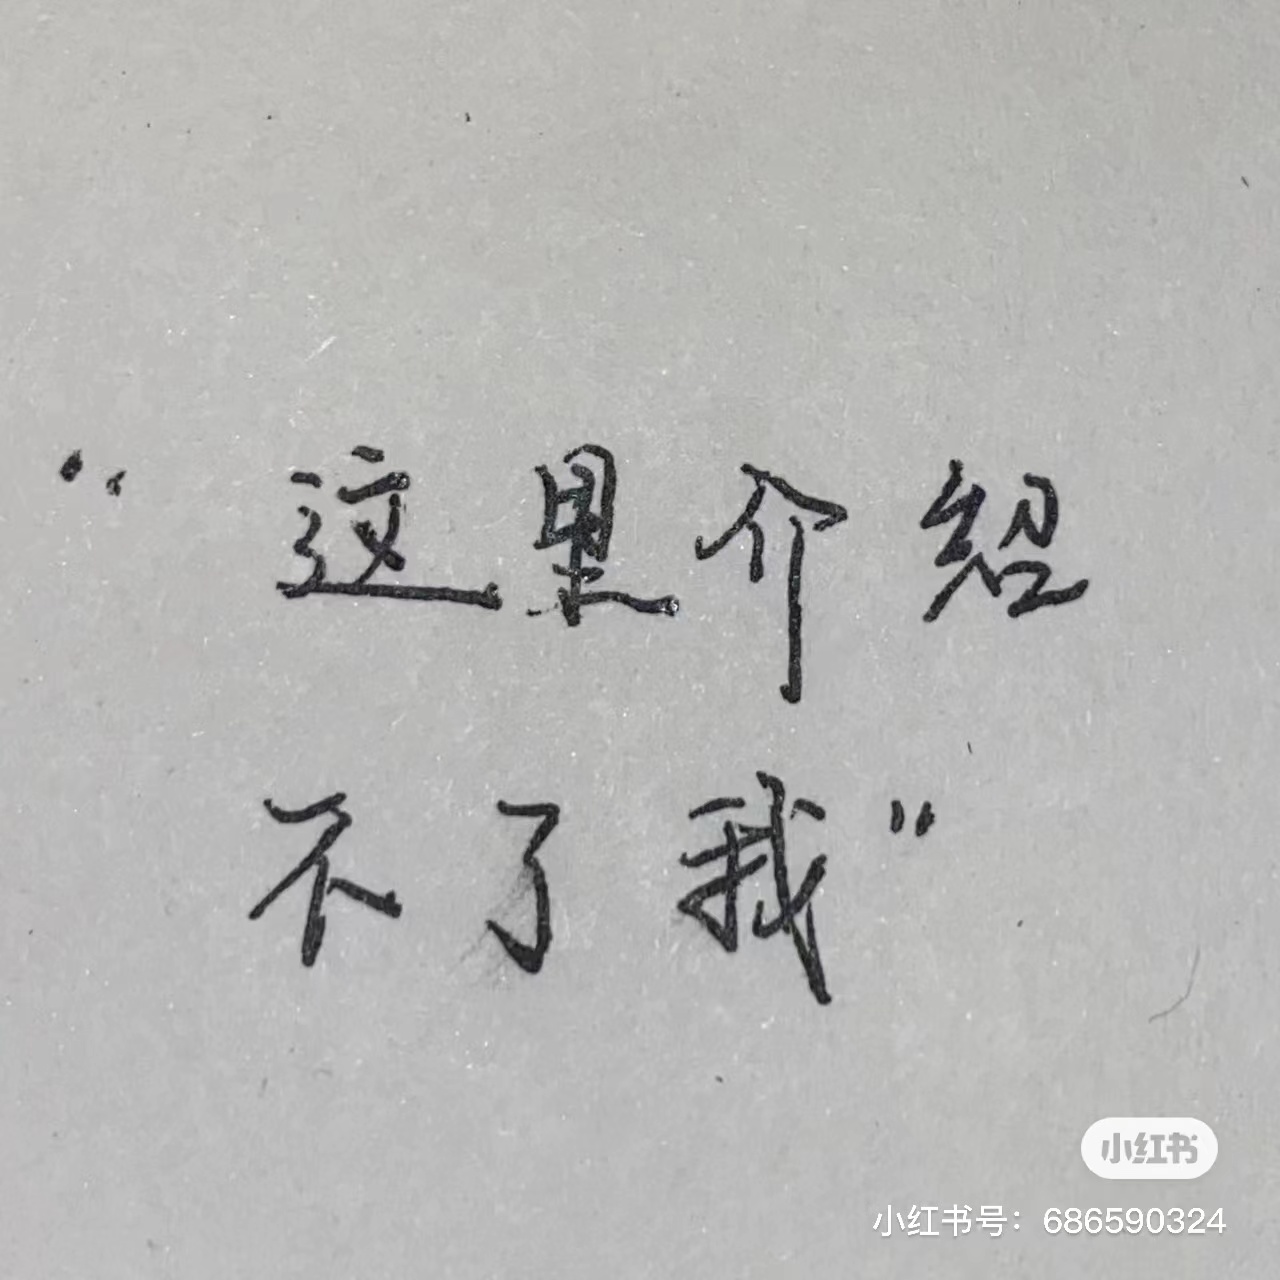 “这里介绍
不了我”
小红书
小红书号：686590324